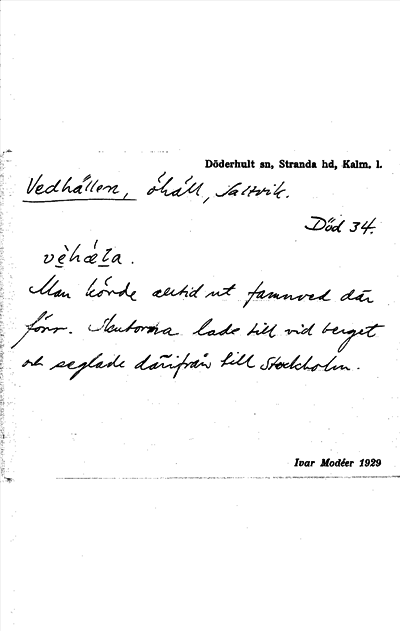 Döderhult sn, Stranda hd, Kalm. l.
Vedhällen, öhäll, Saltvik.
Död 34.
vèhæ̀ta.
Man körde alltid ut famnved där
förr. Skutorna lade till vid berget
och seglade därifrån till Stockholm.
Ivar Modéer 1929